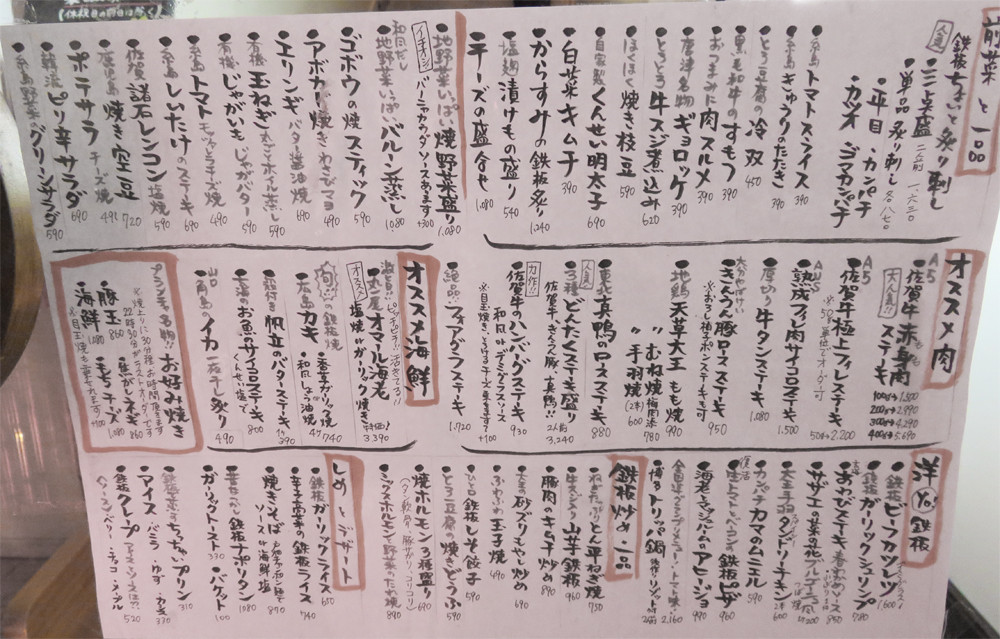 前菜と一品
人気
鉄板ちょいと炙り刺し
・三点盛 二人前 1,630
・単品炙り刺し 各870
・平目・カンパチ
・カツオ・ゴマカンパチ
・糸島トマトスライス 390
・糸島きゅうりのたたき 390
・とろ豆腐の冷奴 450
・黒毛和牛のすもつ 390
・おつまみに肉スルメ 390
・唐津名物ギョロッケ 390
・とろとろ牛スジ煮込み 620
・ほくほく焼き枝豆 590
・自家製くんせい明太子 690
・白菜キムチ 390
・からすみの鉄板炙り 1,240
・塩麹漬けもの盛り 540
・チーズの盛合せ 1,080
・地野菜いっぱい焼野菜盛り 1,080
イチオシ
バーニャカウダソースあります +300
和風だし
・地野菜いっぱいバルーン蒸し 1,080
・ゴボウの焼スティック 590
・アボカド焼き わさびマヨ 490
・エリンギ バター醤油焼 690
・有機 玉ねぎ 丸ごとホイル蒸し 590
・有機 じゃがいも じゃがバター 590
・糸島トマト モッツァレラチーズ焼 490
・糸島しいたけのステーキ 690
・佐賀諸石レンコン 塩焼 690
・鹿児島焼き空豆 720
・ポテサラ チーズ焼 490
・韓流ピリ辛サラダ 690
・糸島野菜のグリーンサラダ 590
オススメ肉
A5
・佐賀牛赤身肉もも
大人気!!
ステーキ
100g→1,500
200g→2,990
300g→4,290
400g→5,690
A5
・佐賀牛極上フィレステーキ
※50g単位でオーダー可
50g→2,200
AUS
・熟成フィレ肉サイコロステーキ 1,500
・厚切り牛タンステーキ 1,080
大分やばけい
・きんうん豚ロースステーキ 950
※おろし柚子ポンステーキも可
・地鶏天草大王もも焼 990
・〃 むね焼 梅肉添 780
・〃 手羽焼 (2本) 600
・東北真鴨ロースステーキ 880
人気
・3種どんたくステーキ盛り
佐賀牛、きんうん豚、真鴨!! 2人前 3,240
力作!!
・佐賀牛のハンバーグステーキ 930
和風 or デミグラスソース
※目玉焼き、とろけるチーズ乗せます +100
・絶品!!フォアグラステーキ 1,720
オススメ海鮮
・丸一尾オマール海老
オススメ!
塩焼 or ガリック焼き 3,390
旬!!の鉄板焼
・広島カキ ・香草ガリック焼 4ケ 740
・和風しょう油焼
・殻付き帆立のバターステーキ 1ケ 390
・玄海のお魚のサイコロステーキ 800
くんせい塩で
山口
・角島のイカ一夜干し炙り 490
プランチャ名物!!お好み焼き
※焼上りに30分程お時間頂きます
22時30分がラストオーダーです
・豚玉 860 ・焦がしネギ 860
・海鮮 1,080 ・もちチーズ 1,080
※目玉焼き乗せれます! +100
洋風鉄板
・鉄板ビーフカツレツ 1,600
・鉄板ガーリックシュリンプ 780
・あわびステーキ 春菊のソース 850
・サザエの菜の花ブルゴーニュ風
・天草手羽タンドリーチキン 2本 600
・カンパチカマのムニエル 590
復活
・生トマトとベーコンの鉄板ピザ 960
・海老とマッシュルームのアヒージョ 990
・博多トリッパ鍋 2,160
鉄板炒め・一品
・ねぎたっぷりとん平ねぎ焼 750
・牛スジ入り山芋鉄板 960
・豚肉のキムチ炒め 890
・大王の砂ズリもやし炒め 690
・ふわふわ玉子焼 490
・ひと口鉄板しそ餃子 590
・とろ豆腐の焼きどうふ 590
・焼ホルモン3種盛 690
(タン軟骨、豚サガリ、コリコリ)
・ミックスホルモンと野菜のみそだれ焼 890
しめとデザート
・鉄板ガーリックライス 650
・辛子高菜の鉄板ライス 740
・焼きそば 890
ソース or 海鮮塩
・昔なつかし鉄板ナポリタン 1,080
・ガリックトースト 330 ・バゲット 100
・ちっちゃいプリン 310
・アイス ・バニラ ・ゆず ・カキ 330
・鉄板クレープ 520
・ベリー ・チョコ ・メープル